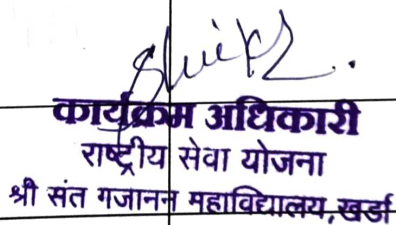 कार्यक्रम अधिकारी
राष्ट्रीय सेवा योजना
श्री संत गजानन महाविद्यालय,खर्डा